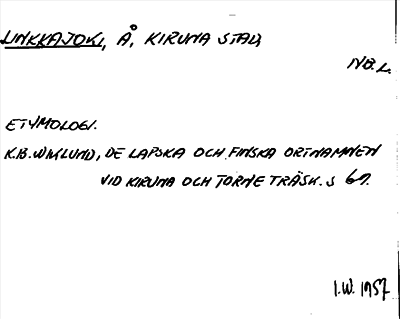 LINKKAJOKI, Å, KIRUNA STAD,
NB.L.
ETYMOLOGI.
K.B. WIKLUND, DE LAPSKA OCH FINSKA ORTNAMNEN
VID KIRUNA OCH TORNE TRÄSK. S 69.
I.W. 1957